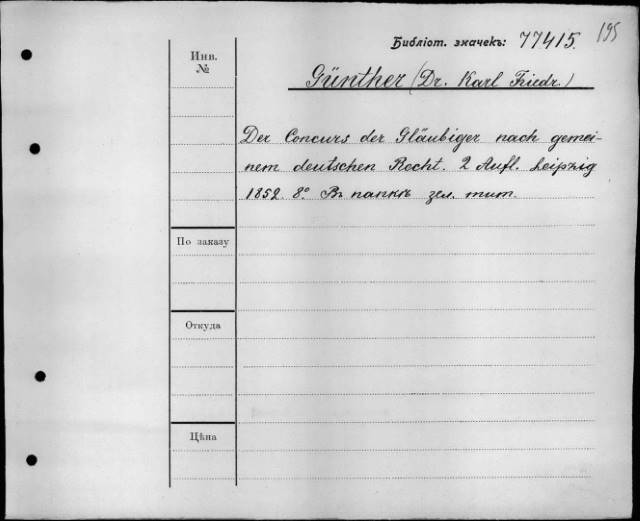 195
Библіот. значекъ: 77415.
Инв. №
Günther (Dr. Karl Friedr.)
Der Concurs der Gläubiger nach gemei-
nem deutschen Recht. 2 Aufl. Leipzig
1852. 8° Въ папкѣ зел. тит.
По заказу
Откуда
Цѣна